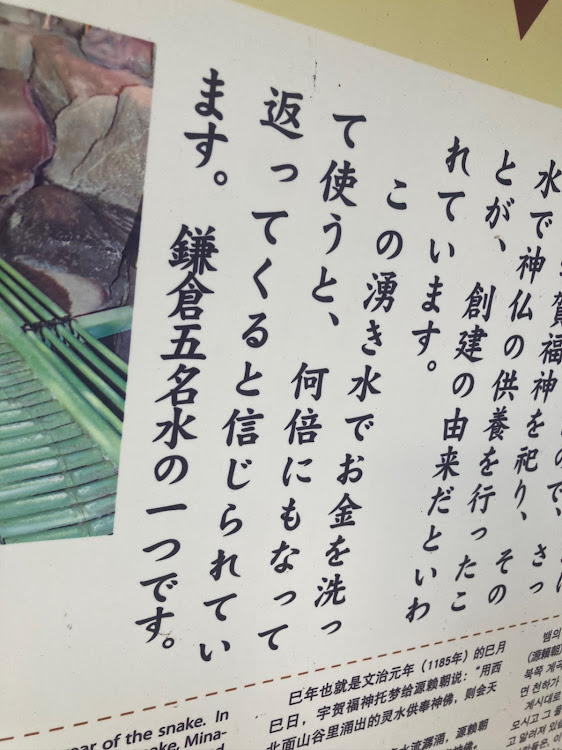 賀福神を祀り、その
水で神仏の供養を行ったこ
とが、創建の由来だといわ
れています。
この湧き水でお金を洗っ
て使うと、何倍にもなって
返ってくると信じられてい
ます。 鎌倉五名水の一つです。
ear of the snake. In
ake, Mina-
巳年也就是文治元年（1185年）的巳月
巳日，宇贺福神托梦给源赖朝说：“用西
北面山谷里涌出的灵水供奉神佛，则会天
뱀의
(源賴朝)
북쪽 계곡
면 천하가
계시대로
모시고 그 물